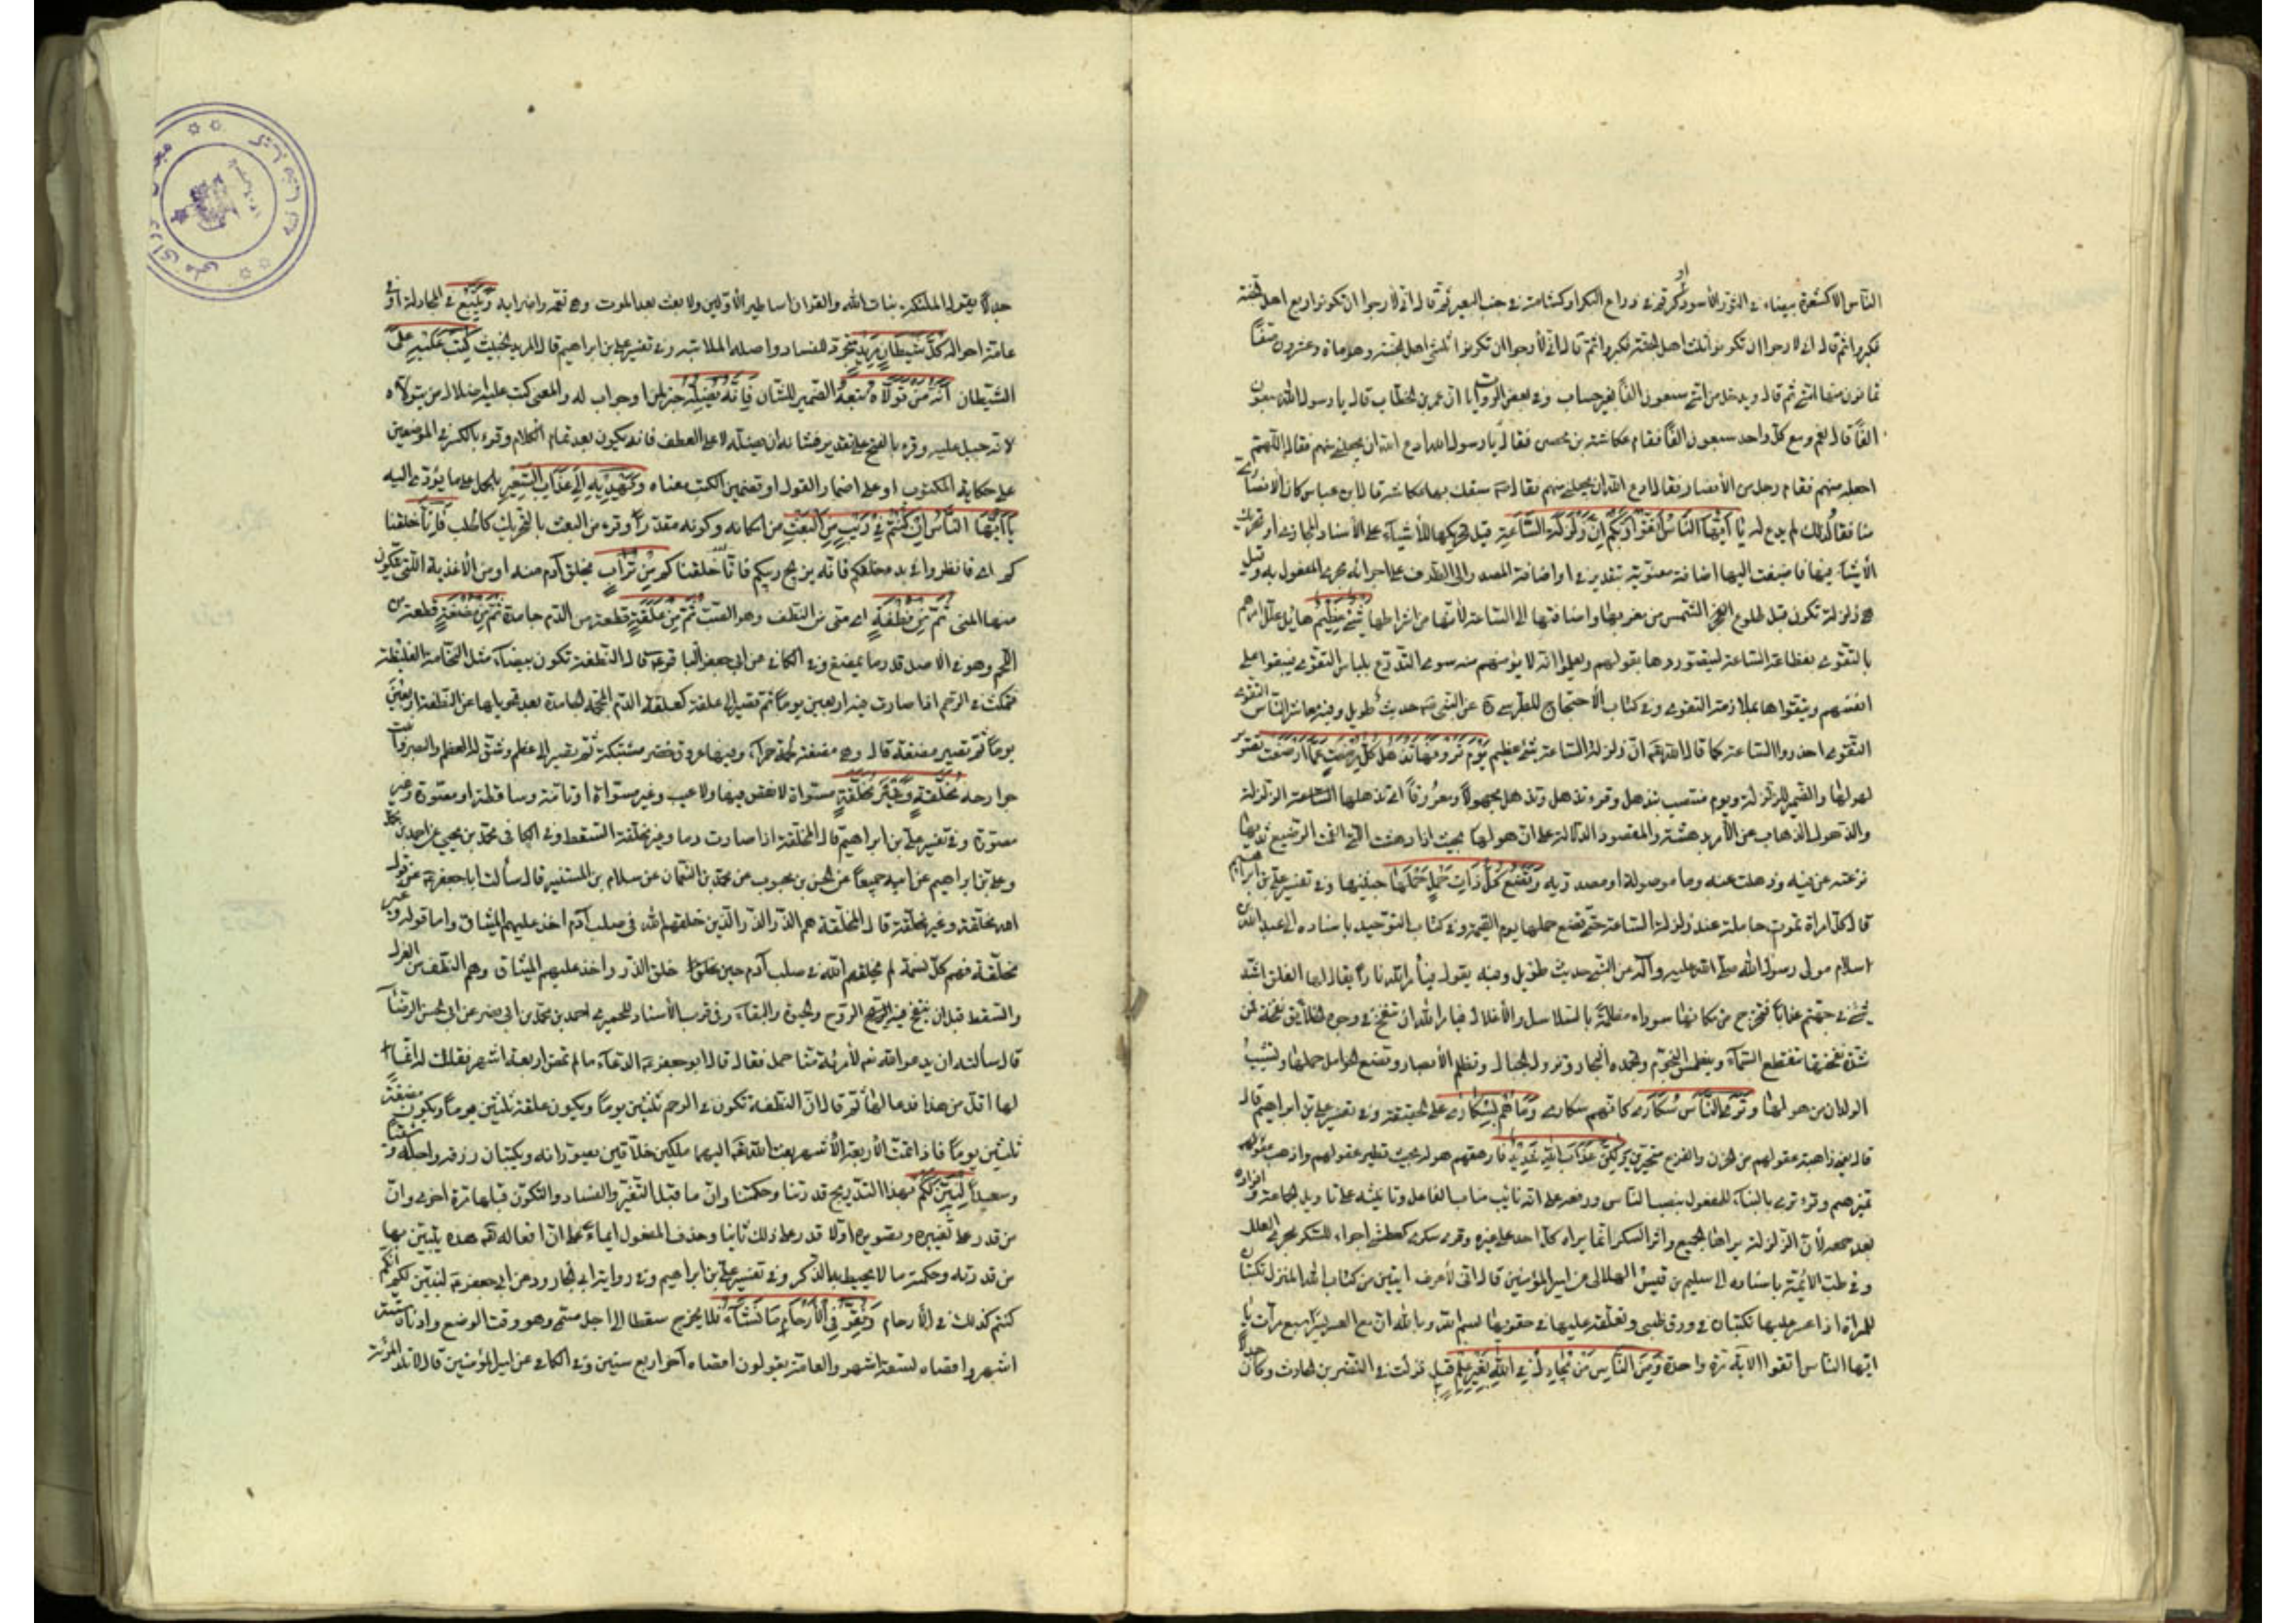 الناس الا كشعرة بيضاء في الثور الاسود او كرقم في ذراع البكر او كشامة في جنب البعير ثم قال اني لارجوا ان تكونوا ربع اهل الجنة
فكبروا ثم قال اني لارجوا ان تكونوا ثلث اهل الجنة فكبروا ثم قال اني لأرجوا ان تكونوا ثلثي اهل الجنة وهو ماة وعشرون صفّاً
ثمانون منها امتي ثم قال ويدخل من امتي سبعون الفاً بغير حساب وفي بعض الروايات ان عمر بن الخطاب قال يا رسول الله سبعون
الفاً قال نعم ومع كل واحد سبعون الفاً فقام عكاشة بن محصن فقال يا رسول الله ادع الله ان يجعلني منهم فقال اللّهم
اجعله منهم فقام رجل من الأنصار فقال ادع الله ان يجعلني منهم فقال سبقك بها عكاشة قال ابن عباس كان الانصاري
منافقا فلذلك لم يدع له يا ايها الناس اتقوا ربكم ان زلزلة الساعة قيل تحريكها للأشياء على الأسناد المجازي او تحريك
الأشياء فيها فاضيفت اليها اضافة معنوية بتقدير في او اضافة المصدر الى الظرف على اجرائه مجرى المفعول به وقيل
هي زلزلة تكون قبل طلوع الشمس من مغربها واضافتها الى الساعة لأنها من اشراطها شئ عظيم هايل علل امرهم
بالتقوى بفظاعة الساعة ليتصوروها بعقولهم ويعلموا انه لا يؤمنهم منه سوى التدرع بلباس التقوى فيبقوا على
انفسهم ويتقوها بملازمة التقوى وفي كتاب الأحتجاج للطبرسي عن النبي حديث طويل وفيه معاشر الناس التقوى
التقوى احذروا الساعة كما قال الله ان زلزلة الساعة شئ عظيم يوم ترونها تذهل كل مرضعة عما ارضعت تصوير
لهولها والضمير للزلزلة ويوم منتصب بتذهل وقرء تذهل وتذهل مجهولاً ومعروفاً اي تذهلها الزلزلة
والذهول الذهاب عن الأمر بدهشة والمقصود الدلالة على ان هولها بحيث اذا دهشت التي القمت الرضيع ثديها
نزعته عن فيه وذهلت عنه وما موصولة او مصدرية وتضع كل ذات حمل حملها جنينها وفي تفسير علي بن ابراهيم
قال كل امراة تموت حاملة عند زلزلة الساعة تضع حملها يوم القيمة وفي كتاب التوحيد باسناده الى عبد الله بن
سلام مولى رسول الله صلى الله عليه وآله عن النبي حديث طويل وفيه يقول فيأمر الله ناراً يقال لها الفلق اشد
شئ في جهنم عذاباً فتخرج من مكانها سوداء مظلمة بالسلاسل والأغلال فيامر الله ان تنفخ في وجوه الخلايق نفخة فمن
شدة نفختها تنقطع السماء وينطمس النجوم وتجمد البحار وتزول الجبال وتظلم الأبصار وتضع الحوامل حملها وتشيب
الولدان من هولها وترى الناس سكارى كانهم سكارى وما هم بسكارى على الحقيقة وفي تفسير علي بن ابراهيم قال
قال يعني ذاهبة عقولهم من الحزن والفزع متحيرين ولكن عذاب الله شديد فارهقهم هوله بحيث تطير عقولهم واذهب
تميزهم وقرء ترى بالبناء للمفعول بنصب الناس ورفعه على انه نايب مناب الفاعل وتانيثه على تاويل الجماعة وافراده
بعد جمعه لأن الزلزلة يراها الجميع واثر السكر انما يراه كل احد على غيره وقرء سكرى كعطشى اجراء للسكر مجرى العلل
وفي طب الأئمة باسناده الى سليم بن قيس الهلالي عن امير المؤمنين قال اني لأعرف ايتين من كتاب الله المنزل تكتبان
للمراة اذا عسر عليها تكتبان في ورق ظبي وتعلقه عليها في حقويها بسم الله وبالله ان مع العسر يسراً سبع مرات يا
ايها الناس اتقوا الاية مرة واحدة ومن الناس من يجادل في الله بغير علم قيل نزلت في النضر بن الحارث وكان
جدلاً يقول الملئكة بنات الله والقران اساطير الأولين ولا بعث بعد الموت وهي تعمه واضرابه ويتبع في المجادلة او في
عامة احواله كل شيطان مريد متجرد للفساد واصله الملاسة وفي تفسير علي بن ابراهيم قال المريد الخبيث كتب عليه على
الشيطان انه من تولاه تبعه والضمير للشان فانه يضله خبر لمن او جواب له والمعنى كتب عليه اضلال من يتولاه
لانه جبل عليه وقرء بالفتح على تقدير فشانه ان يضله لا على العطف فانه يكون بعد تمام الكلام وقرء بالكسر في الموضعين
على حكاية المكتوب او على اضمار القول او تضمين الكتب معناه ويهديه الى عذاب السعير بالحمل على ما يؤدي اليه
يا ايها الناس ان كنتم في ريب من البعث من امكانه وكونه مقدوراً وقرء من البعث بالتحريك كالجلب فانا خلقنا
كم اي فانظروا في بدء خلقكم فانه يزيح ريبكم فانا خلقناكم من تراب بخلق آدم منه او من الأغذية التي يتكون
منها المني ثم من نطفة اي مني من النطف وهو الصب ثم من علقة قطعة من الدم جامدة ثم من مضغة قطعة من
اللحم وهو في الاصل قدر ما يمضغ وفي الكافي عن ابي جعفر الباقر قال النطفة تكون بيضاء مثل النخامة الغليظة
فتمكث في الرحم اذا صارت فيه اربعين يوماً ثم تصير الى علقة كعلقة الدم الجامدة بعد تحويلها عن النطفة اربعين
يوماً ثم تصير مضغة قال وهي مضغة لحمة حمراء وفيها عروق خضر مشتبكة ثم تصير الى عظم وشق له السمع والبصر ورتبت
جوارحه مخلقة وغير مخلقة مستواة لا نقص فيها ولا عيب وغير مستواة او تامة وساقطة او مصورة وغير
مصورة وفي تفسير علي بن ابراهيم قال المخلقة اذا صارت دما وغير مخلقة السقط وفي الكافي محمد بن يحيى عن احمد بن محمد
وعلي بن ابراهيم عن ابيه جميعاً عن الحسن بن محبوب عن محمد بن النعمان عن سلام بن المستنير قال سألت ابا جعفر عن قول
الله مخلقة وغير مخلقة قال المخلقة هم الذر الذين خلقهم الله في صلب آدم اخذ عليهم الميثاق واما قوله وغير
مخلقة فهم كل نسمة لم يخلقهم الله في صلب آدم حين خلق الذر واخذ عليهم الميثاق وهم النطف من العزل
والسقط قبل ان ينفخ فيه الروح والحيوة والبقاء وفي قرب الأسناد للحميري احمد بن محمد بن ابي نصر عن ابي الحسن الرضا
قال سألته ان يدعو الله لأمرئة منا حمل فقال قال ابو جعفر الدعاء ما لم تمض اربعة اشهر فقلت له انما
لها اقل من هذا فدعا لها ثم قال ان النطفة تكون في الرحم ثلثين يوماً ويكون علقة ثلثين يوماً ويكون مضغة
ثلثين يوماً فاذا تمت الأربعة الأشهر بعث الله اليها ملكين خلاقين يصورانه ويكتبان رزقه واجله وشقيا
وسعيداً لنبين لكم بهذا التدريج قدرتنا وحكمتنا وان ما قبل التغير والفساد والتكون قبلها مرة اخرى وان
من قدر على تغييره وتصويره اولا قدر على ذلك ثانيا وحذف المفعول ايماء الى ان افعاله هذه يتبين بها
من قدرته وحكمته ما لا يحيط به الذكر وفي تفسير علي بن ابراهيم وفي رواية ابي الجارود عن ابي جعفر لنبين لكم انكم
كنتم كذلك في الأرحام ونقر في الأرحام ما نشاء فلا يخرج سقطا الى اجل مسمى وهو وقت الوضع وادناه ستة
اشهر واقصاه تسعة اشهر والعامة يقولون اقصاه آخر اربع سنين وفي الكافي عن امير المؤمنين قال لا تلد المرئة